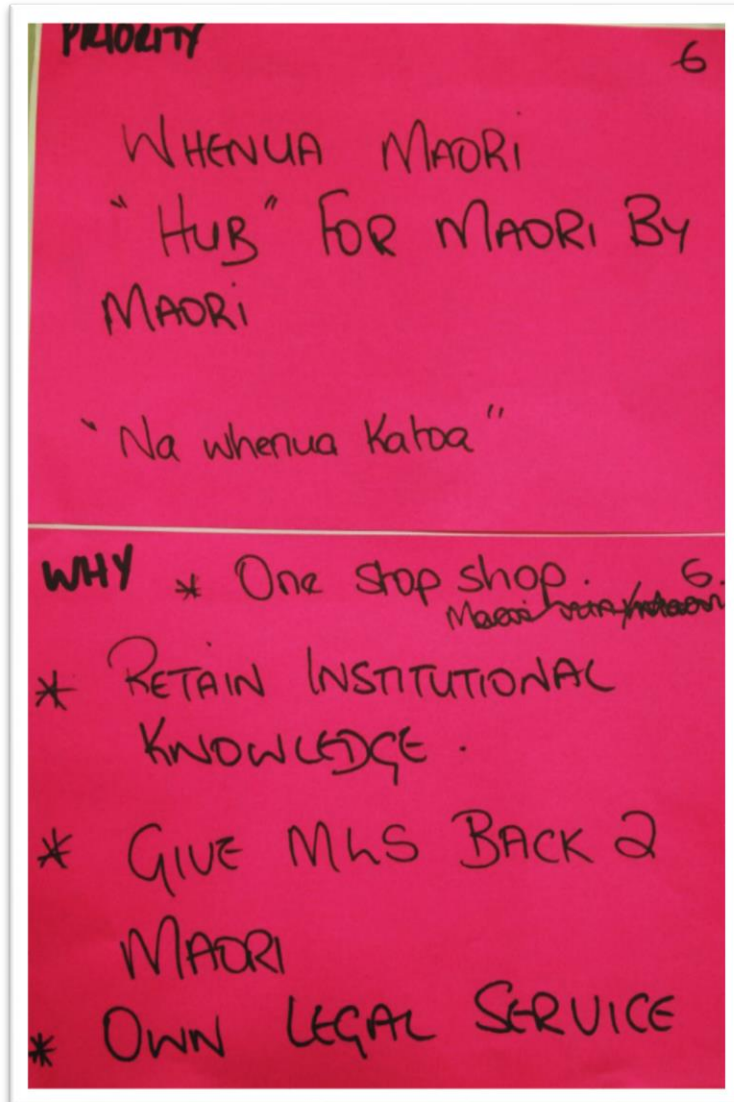 PRIORITY 6
WHENUA MAORI
"HUB" FOR MAORI BY
MAORI
"Na whenua Katoa"
WHY * One stop shop. 6.
* RETAIN INSTITUTIONAL
KNOWLEDGE.
* GIVE MLS BACK 2
MAORI
* OWN LEGAL SERVICE